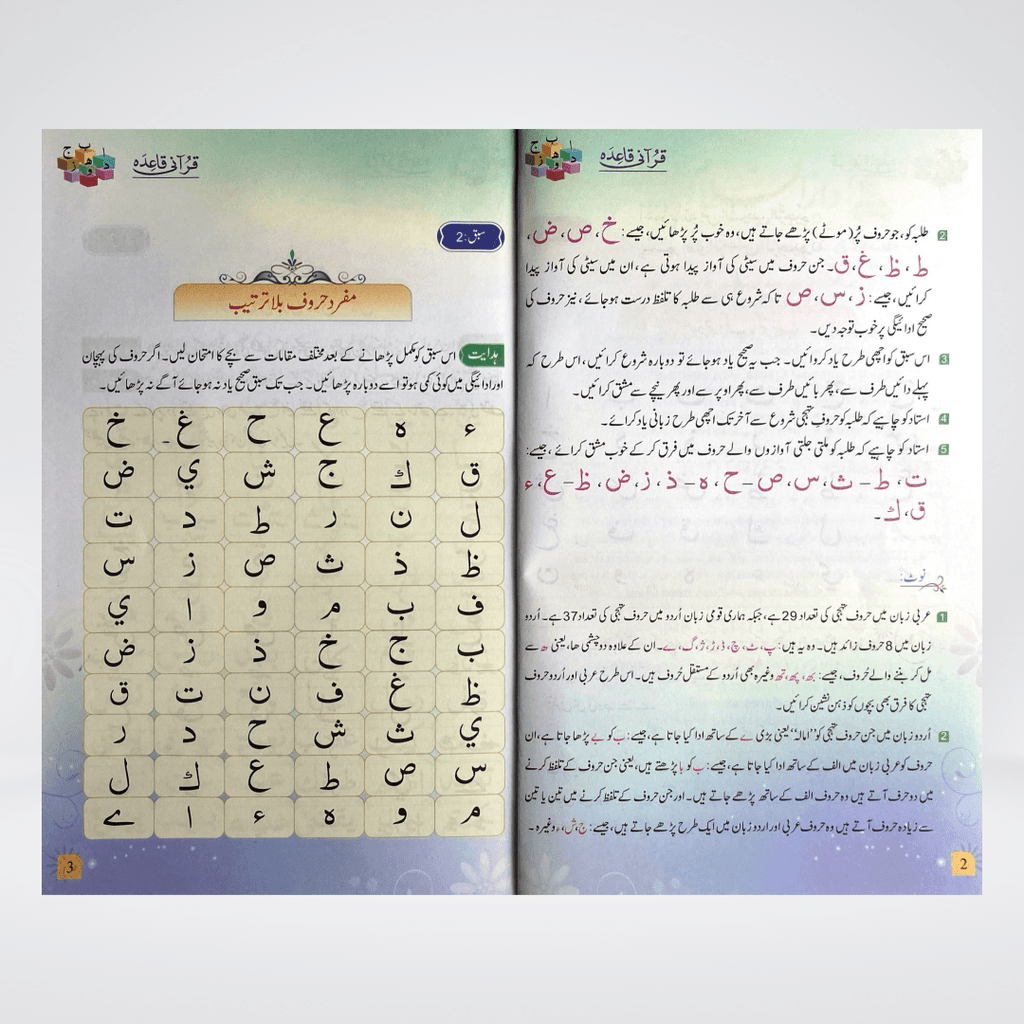 قرآنی قاعدہ
2 طلبہ کو، جو حروف پُر (موٹے) پڑھے جاتے ہیں، وہ خوب پُر پڑھائیں، جیسے: خ، ص، ض،
ط، ظ، غ، ق۔ جن حروف میں سیٹی کی آواز پیدا ہوتی ہے، ان میں سیٹی کی آواز پیدا
کرائیں، جیسے: ز، س، ص تاکہ شروع ہی سے طلبہ کا تلفظ درست ہو جائے، نیز حروف کی
صحیح ادائیگی پر خوب توجہ دیں۔
3 اس سبق کو اچھی طرح یاد کروائیں۔ جب یہ صحیح یاد ہو جائے تو دوبارہ شروع کرائیں، اس طرح کہ
پہلے دائیں طرف سے، پھر بائیں طرف سے، پھر اوپر سے اور پھر نیچے سے مشق کرائیں۔
4 استاد کو چاہیے کہ طلبہ کو حروفِ تہجی شروع سے آخر تک اچھی طرح زبانی یاد کرائے۔
5 استاد کو چاہیے کہ طلبہ کو ملتی جلتی آوازوں والے حروف میں فرق کر کے خوب مشق کرائے، جیسے:
ت، ط – ث، س، ص – ح، ہ – ذ، ز، ض، ظ – ع، ء
ق، ك۔
نوٹ:
1 عربی زبان میں حروف تہجی کی تعداد 29 ہے، جبکہ ہماری قومی زبان اُردو میں حروف تہجی کی تعداد 37 ہے۔ اُردو
زبان میں 8 حروف زائد ہیں۔ وہ یہ ہیں: پ، ٹ، چ، ڈ، ڑ، ژ، گ، ے۔ ان کے علاوہ دو چشمی ھا، یعنی ھ سے
مل کر بننے والے حُروف، جیسے: بھ، پھ، تھ وغیرہ بھی اُردو کے مستقل حُروف ہیں۔ اس طرح عربی اور اُردو حروف
تہجی کا فرق بھی بچوں کو ذہن نشین کرائیں۔
2 اُردو زبان میں جن حروف تہجی کو ”امالہ“ یعنی بڑی ے کے ساتھ ادا کیا جاتا ہے، جیسے: ب کو بے پڑھا جاتا ہے، ان
حروف کو عربی زبان میں الف کے ساتھ ادا کیا جاتا ہے، جیسے: ب کو با پڑھتے ہیں، یعنی جن حروف کے تلفظ کرنے
میں دو حرف آتے ہیں وہ حروف الف کے ساتھ پڑھے جاتے ہیں۔ اور جن حروف کے تلفظ کرنے میں تین یا تین
سے زیادہ حروف آتے ہیں وہ حروف عربی اور اردو زبان میں ایک طرح پڑھے جاتے ہیں، جیسے: ج، ش، ء وغیرہ۔
2
قرآنی قاعدہ
سبق: 2
مفرد حروف بلا ترتیب
ہدایت اس سبق کو مکمل پڑھانے کے بعد مختلف مقامات سے بچے کا امتحان لیں۔ اگر حروف کی پہچان
اور ادائیگی میں کوئی کمی ہو تو اسے دوبارہ پڑھائیں۔ جب تک سبق صحیح یاد نہ ہو جائے آگے نہ پڑھائیں۔
ء ه ع ح غ خ
ق ك ج ش ي ض
ل ن ر ط د ت
ظ ذ ث ص ز س
ف ب م و ا ي
ب ج خ ذ ز ض
ظ غ ف ن ت ق
ي ث ش ح د ر
س ص ط ع ك ل
م و ه ء ا ے
3